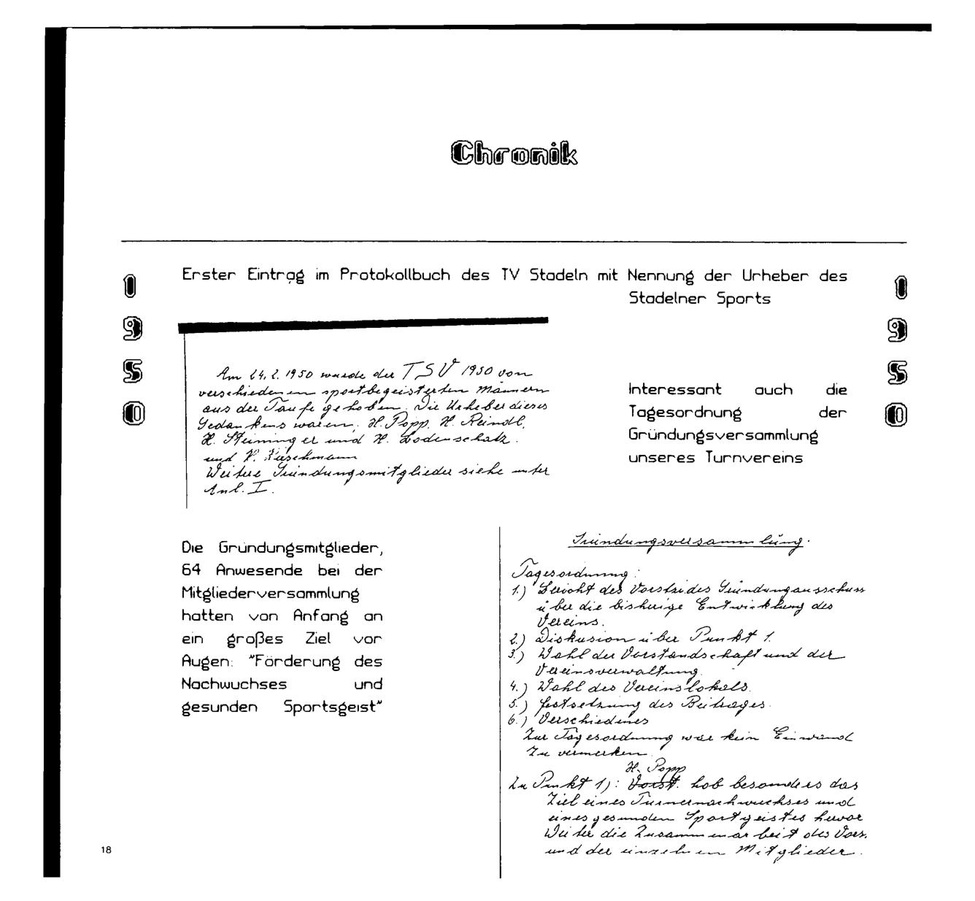 Chronik
1950
1950
Erster Eintrag im Protokollbuch des TV Stadeln mit Nennung der Urheber des
Stadelner Sports
Am 24.2.1950 wurde der TSV 1950 von
verschiedenen sportbegeisterten Männern
aus der Taufe gehoben. Die Urheber dieses
Gedankens waren: H. Popp, H. Reindl,
H. Steininger und H. Bodenschatz.
und
Weitere Gründungsmitglieder siehe unter
Anl. I.
Interessant auch die
Tagesordnung der
Gründungsversammlung
unseres Turnvereins
Die Gründungsmitglieder,
64 Anwesende bei der
Mitgliederversammlung
hatten von Anfang an
ein großes Ziel vor
Augen: "Förderung des
Nachwuchses und
gesunden Sportsgeist"
Gründungsversammlung.
Tagesordnung:
1.) Bericht des Gründungsausschuss
über die bisherige Entwicklung des
Vereins.
2.) Diskusion über Punkt 1.
3.) Wahl der Vorstandschaft und der
Vereinsverwaltung
4.) Wahl des Vereinslokals.
5.) Festsetzung des Beitrages.
6.) Verschiedenes
Zur Tagesordnung war kein Einwand
zu vermerken.
H. Popp
Zu Punkt 1): Vorst. hob besonders das
Ziel eines Turnernachwuchses und
eines gesunden Sportgeistes hervor
Weiter die Zusammenarbeit des Vors.
und der einzelnen Mitglieder.
18